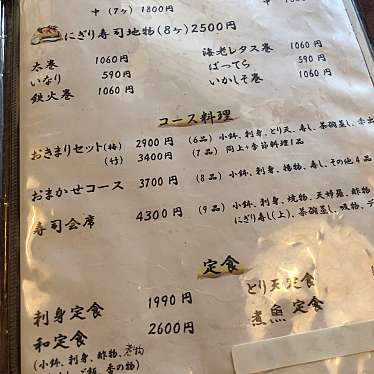 中 (7ヶ) 1800円
にぎり寿司地物(8ヶ)2500円
太巻 1060円 海老レタス巻 1060円
いなり 590円 ばってら 590円
鉄火巻 1060円 いかしそ巻 1060円
コース料理
おきまりセット(梅) 2900円 (6品) 小鉢、刺身、とり天、寿し、茶碗蒸し、赤出
(竹) 3400円 (7品) 同上+季節料理1品
おまかせコース 3700円 (8品) 小鉢、刺身、揚物、寿し、その他4品
寿司会席 4300円 (9品) 小鉢、刺身、焼物、天婦羅、酢物
にぎり寿し(上)、茶碗蒸し、吸物、デ
定食
刺身定食 1990円 とり天定食
和定食 2600円 煮魚定食
(小鉢、刺身、酢物、煮物
ご飯、香の物)